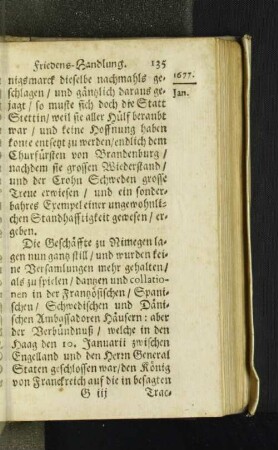 Friedens-Handlung. 135
1677.
Jan.
nigsmarck dieselbe nachmahls ge-
schlagen / und gäntzlich daraus ge-
jagt / so muste sich doch die Statt
Stettin / weil sie aller Hülf beraubt
war / und keine Hoffnung haben
konte entsetzt zu werden / endlich dem
Churfürsten von Brandenburg /
nachdem sie grossen Wiederstand /
und der Crohn Schweden grosse
Treue erwiesen / und ein sonder-
bahres Exempel einer ungewöhnli-
chen Standhafftigkeit gewesen / er-
geben.
Die Geschäffte zu Nimegen la-
gen nun gantz still / und wurden kei-
ne Versamlungen mehr gehalten /
als zu spielen / dantzen und collatio-
nen in der Frantzösischen / Spani-
schen / Schwedischen und Däni-
schen Ambassadoren Häusern : aber
der Verbündnuß / welche in den
Haag den 10. Januarii zwischen
Engelland und den Herrn General
Staten geschlossen war / den König
von Franckreich auf die in besagten
G iij Trac-